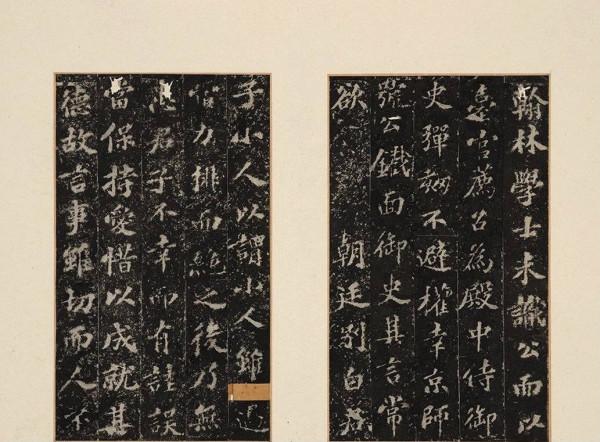 翰林學士未識公而以
臺官薦召為殿中侍御
史彈劾不避權幸京師
號公鐵面御史其言常
欲 朝廷別白君
子小人以謂小人雖過
當力排而絕之後乃無
患君子不幸而有詿誤
當保持愛惜以成就其
德故言事雖切而人不